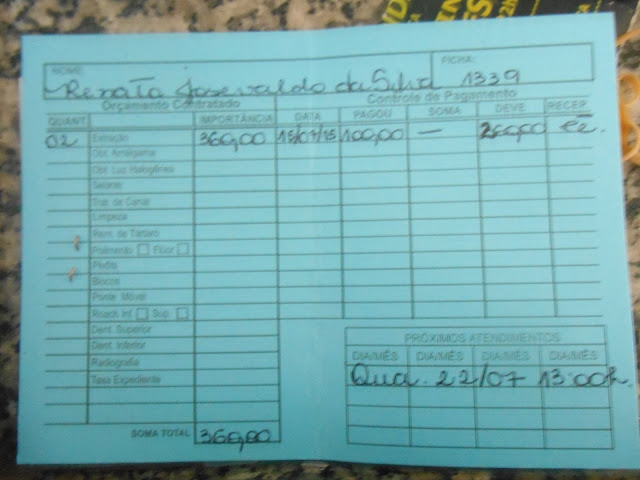 NOME: Renata Josevaldo da Silva FICHA: 1339
Orçamento Contratado Controle de Pagamento
QUANT. IMPORTÂNCIA DATA PAGOU SOMA DEVE RECEP.
02 Extração 360,00 15/07/15 100,00 — 260,00
Obt. Amálgama
Obt. Luz Halogênea
Selante
Trat. de Canal
Limpeza
Rem. de Tártaro
Polimento Flúor
Pivôs
Blocos
Ponte Móvel
Roach Inf. Sup.
Dent. Superior
Dent. Inferior
Radiografia
Taxa Expediente
SOMA TOTAL 360,00
PRÓXIMOS ATENDIMENTOS
DIA/MÊS DIA/MÊS DIA/MÊS DIA/MÊS
Qua. 22/07 13:00h.